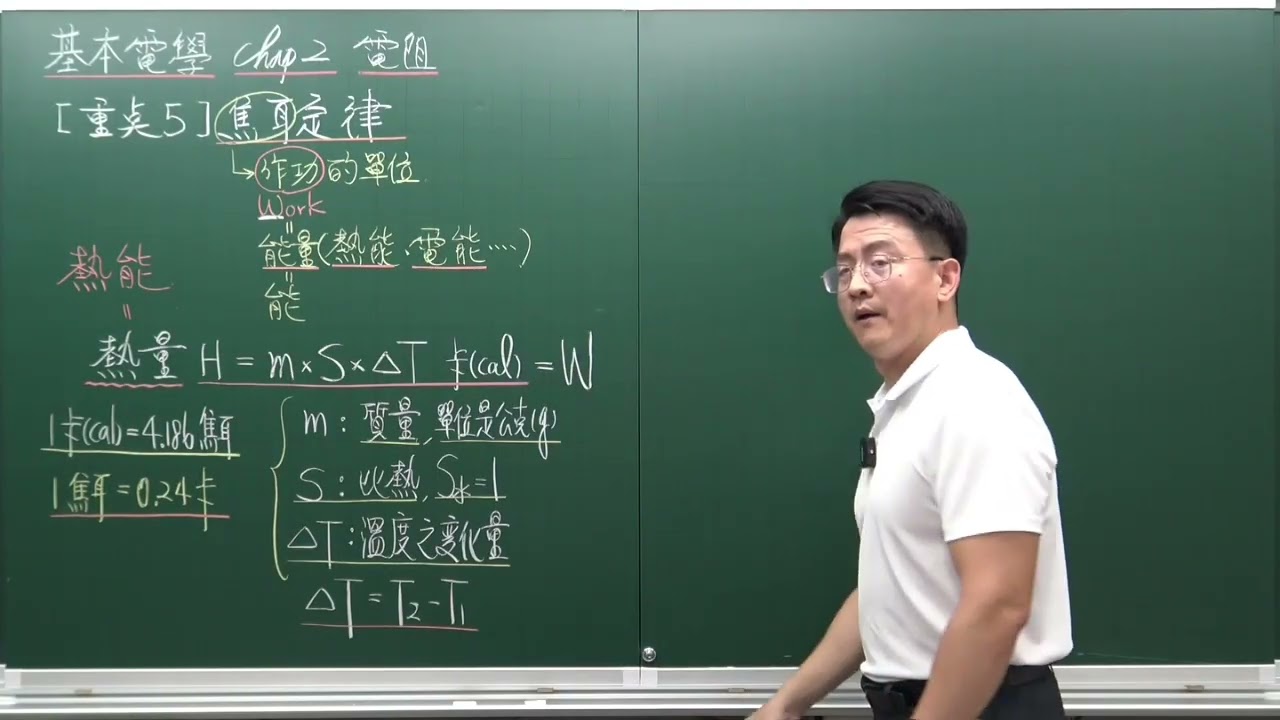 基本電學 Chap 2 電阻
[重点5]焦耳定律
↳作功的單位
Work
=
能量(熱能、電能....)
=
能
熱能
=
熱量 H = m×S×△T 卡(cal) = W
1卡(cal)=4.186焦耳
1焦耳=0.24卡
m:質量,單位是公克(g)
S:比熱,S水=1
△T:溫度之变化量
△T=T₂-T₁